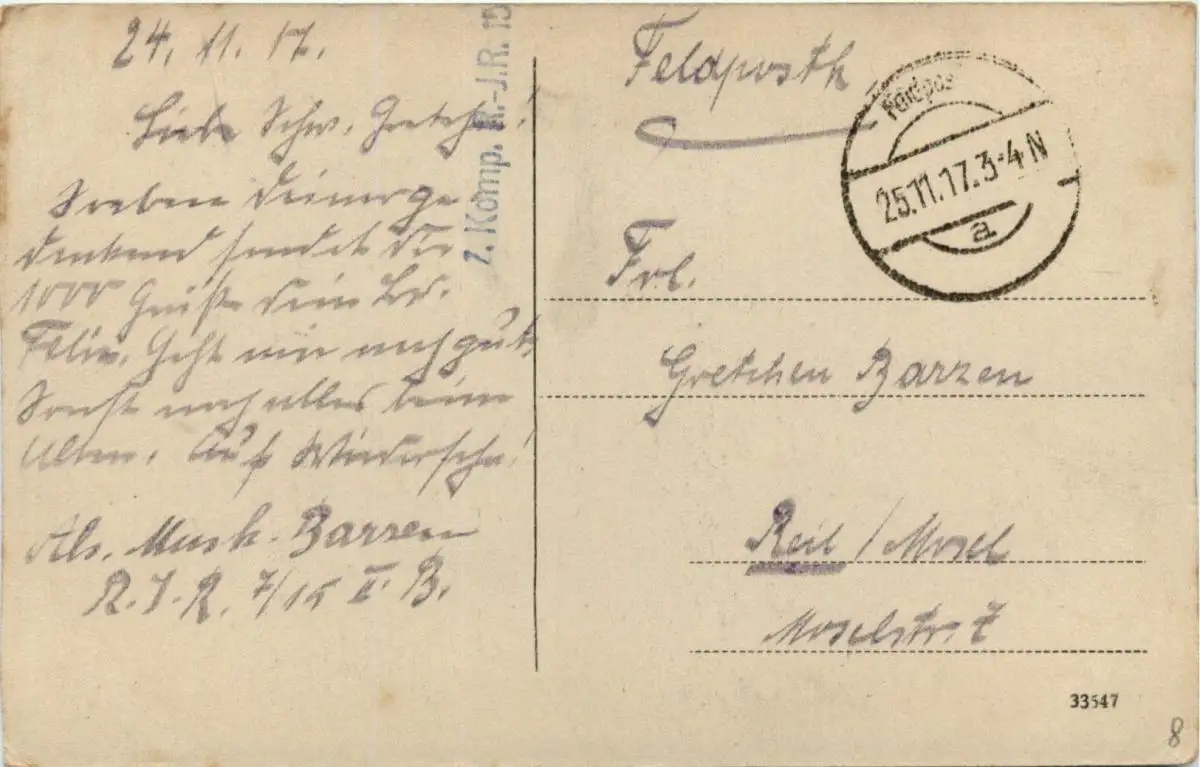 24. 11. 17.
Liebe Schw. Gretchen!
Soeben Deiner ge
denkend sendet Dir
1000 Grüße Dein Br.
Geht mir noch gut,
Sonst noch alles beim
Alten. Auf Wiedersehn!
Abs. Musk. Barzen
R. I. R. 7/15 II. B.
7. Komp. R.-J.R. 15
Feldpostk
Feldpos
25.11.17.3-4 N
a
Frl.
Gretchen Barzen
Reil / Mosel
Moselstr. 7
33547
8